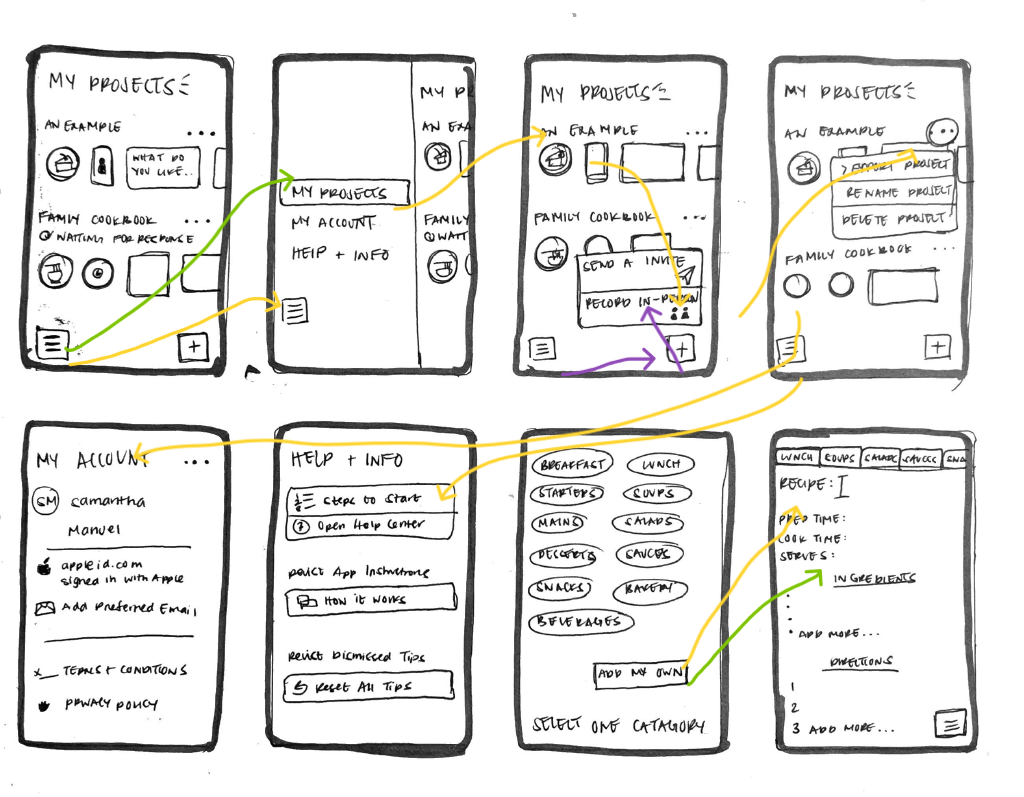 MY PROJECTS
AN EXAMPLE
WHAT DO
YOU LIKE...
FAMILY COOKBOOK
WAITING FOR RESPONSE
MY PROJECTS
MY ACCOUNT
HELP + INFO
MY PR
AN EXA
FAMILY
WAIT
MY PROJECTS
AN EXAMPLE
FAMILY COOKBOOK
SEND A INVITE
RECORD IN-PERSON
MY PROJECTS
AN EXAMPLE
> EXPORT PROJECT
RENAME PROJECT
DELETE PROJECT
FAMILY COOKBOOK
MY ACCOUNT
SM samantha
Manuel
appleid.com
signed in with Apple
Add Preferred Email
TERMS + CONDITIONS
PRIVACY POLICY
HELP + INFO
Steps to Start
? Open Help Center
Revisit App Instructions
HOW IT WORKS
Revisit Dismissed Tips
Reset All Tips
BREAKFAST LUNCH
STARTERS SOUPS
MAINS SALADS
DESSERTS SAUCES
SNACKS BAKERY
BEVERAGES
ADD MY OWN
SELECT ONE CATAGORY
LUNCH SOUPS SALADS SAUCES SNA
RECIPE:
PREP TIME:
COOK TIME:
SERVES:
INGREDIENTS
• ADD MORE...
DIRECTIONS
1
2
3 ADD MORE...